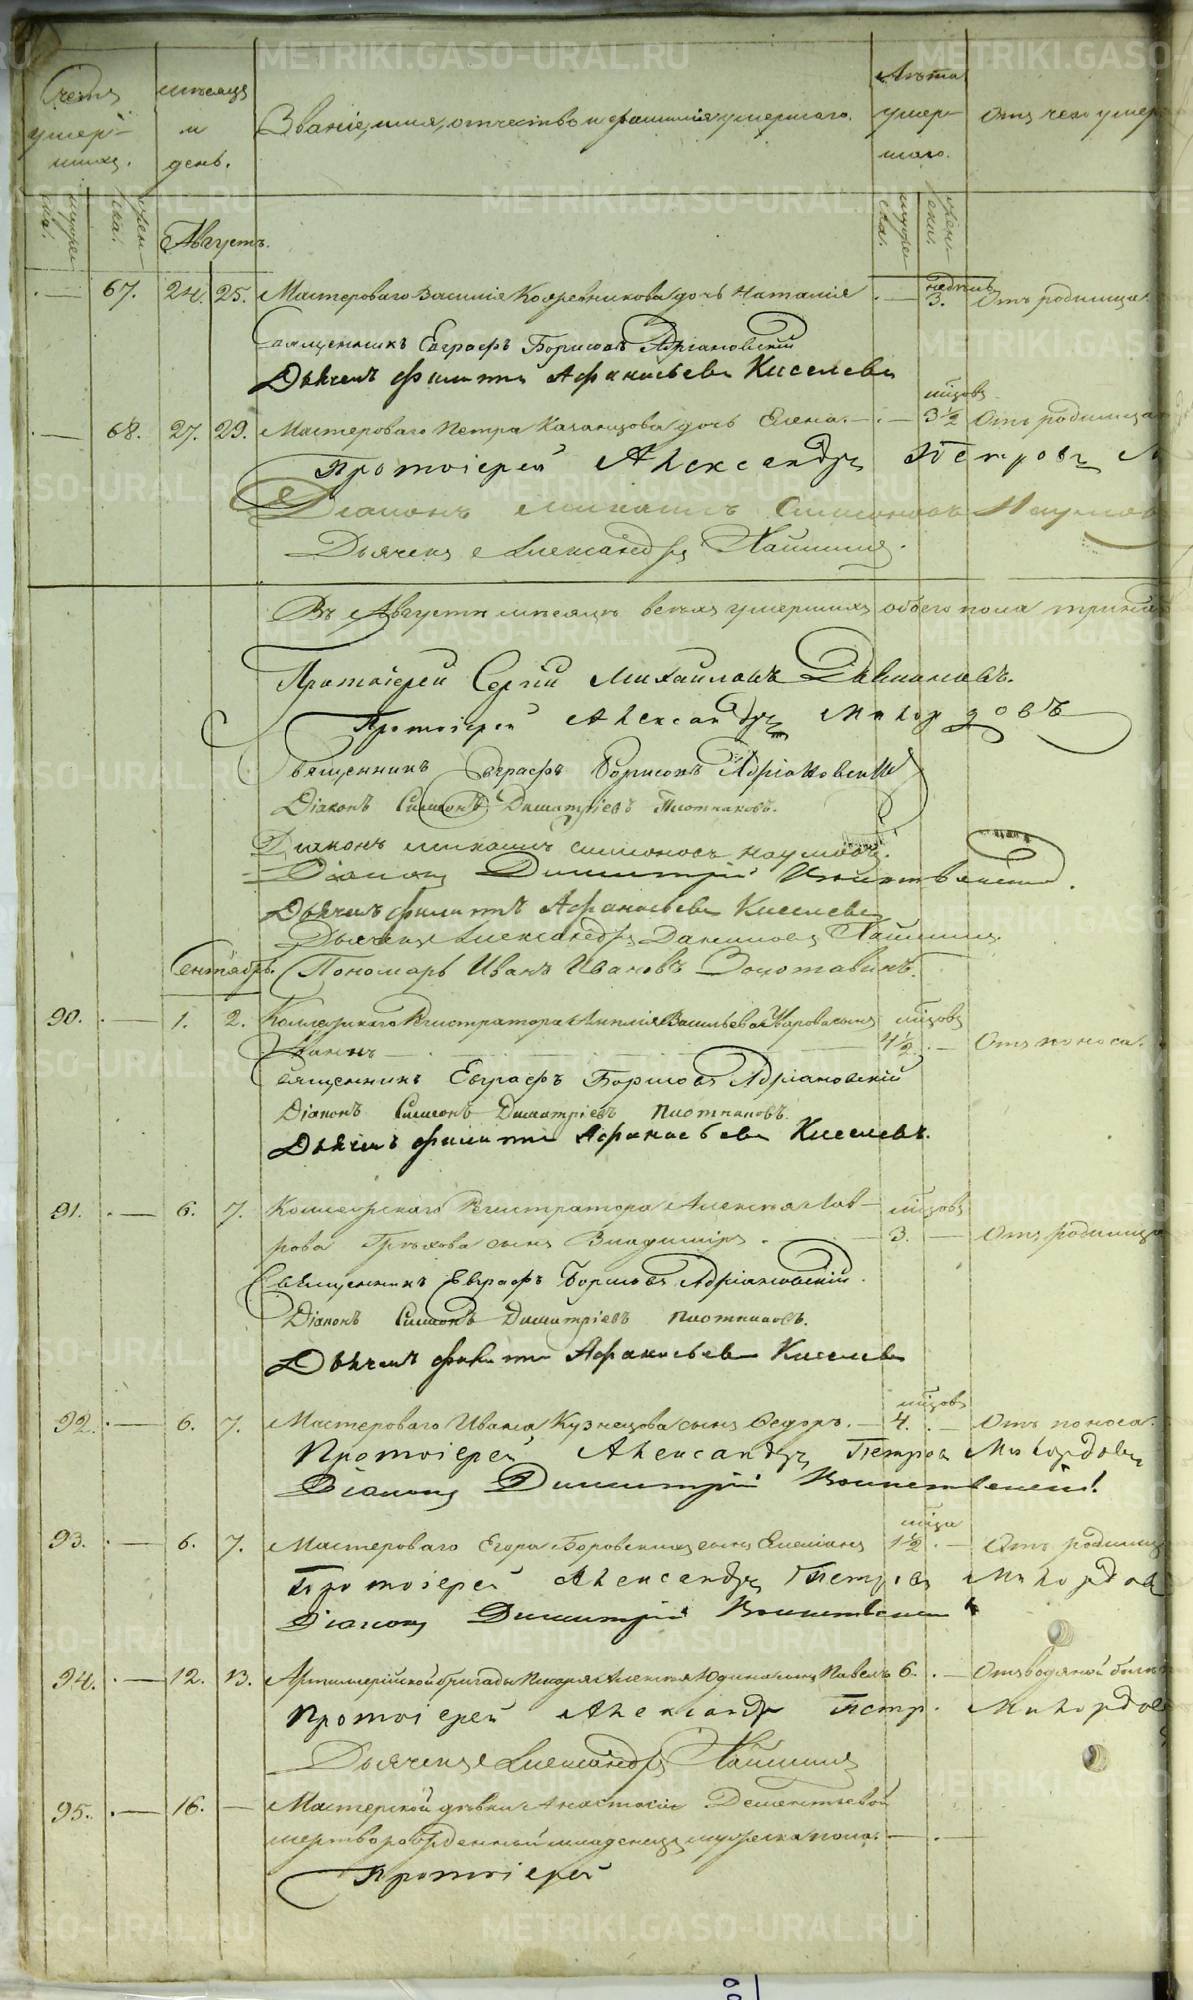 Счетъ умер- шихъ.
мѣсяцъ и день.
Званіе, имя, отчество и фамилія умершаго.
Лѣта умер- шаго.
Отъ чего умер
мужеска. женска.
Августъ.
мужеска. женски.
67. 24. 25. Мастероваго Василія Кодревникова дочь Наталія 3. недѣль Отъ родимца.
Священникъ Евграфъ Борисовъ Адріановскій
Дьячекъ Филиппъ Афанасьевъ Киселевъ
68. 27. 29. Мастероваго Петра Казанцова дочь Елена. 3½ мѣсяцовъ Отъ родимца
Протоіерей Александръ Петровъ М
Діаконъ Михаилъ Симоновъ Наумов
Дьячекъ Александръ Пашинъ.
Въ Августѣ мѣсяцѣ всѣхъ умершихъ обоего пола тринад
Протоіерей Сергій Михайловъ
Протоіерей Александръ
Священникъ Евграфъ Борисовъ Адріановскій
Діаконъ Симеонъ Димитріевъ Плотниковъ.
Діаконъ Михаилъ Симоновъ Наумовъ.
Діаконъ Димитрій
Дьячекъ Филиппъ Афанасьевъ Киселевъ
Дьячекъ Александръ Даниловъ Пашинъ.
Сентябрь.
Пономарь Иванъ Ивановъ Золотавинъ.
90. 1. 2. Коллежскаго Регистратора Васильева сынъ мѣсяцовъ
4½ Отъ поноса.
Священникъ Евграфъ Борисовъ Адріановскій
Діаконъ Симеонъ Димитріевъ Плотниковъ.
Дьячекъ Филиппъ Афанасьевъ Киселевъ.
91. 6. 7. Коллежскаго Регистратора Алексѣя Лав- мѣсяцовъ
рова Грѣхова сынъ Владиміръ. 3. Отъ родимца
Священникъ Евграфъ Борисовъ Адріановскій.
Діаконъ Симеонъ Димитріевъ Плотниковъ.
Дьячекъ Филиппъ Афанасьевъ Киселевъ
92. 6. 7. Мастероваго Ивана Кузнецова сынъ Ѳедоръ. 4. мѣсяцовъ Отъ поноса.
Протоіерей Александръ Петровъ
Діаконъ Димитрій
93. 6. 7. Мастероваго Егора Боровскихъ сынъ Емеліанъ 1½ мѣсяца Отъ родимц
Протоіерей Александръ Петровъ
Діаконъ Димитрій
94. 12. 13. Артиллерійской бригады Писаря Алексѣя Юдина сынъ Павелъ 6. Отъ водяной болѣ
Протоіерей Александръ Петр.
Дьячекъ Александръ Пашинъ
95. 16. Мастерской дѣвки Анастасіи Дементьевой
мертворожденный младенецъ мужеска пола.
Протоіерей
METRIKI.GASO-URAL.RU